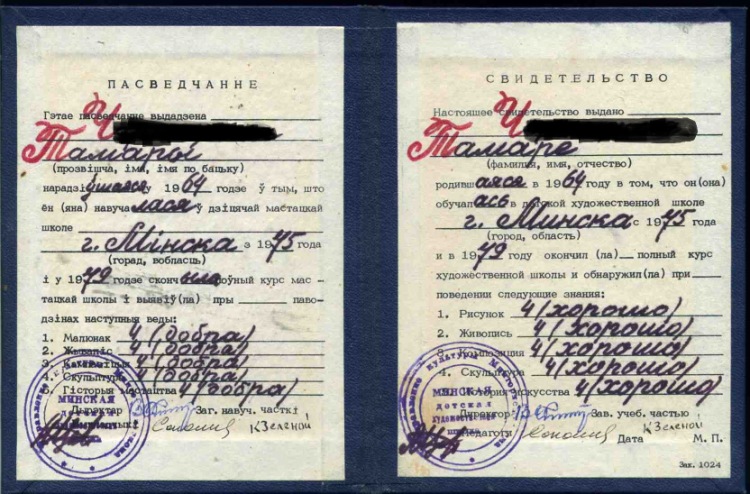 ПАСВЕДЧАННЕ
Гэтае пасведчанне выдадзена
Ч
Тамары
(прозвішча, імя, імя по бацьку)
нарадзіўшаяся ў 1964 годзе ў тым, што
ён (яна) навучалася ў дзіцячай мастацкай
школе
г. Мінска з 1975 года
(горад, вобласць)
і ў 1979 годзе скончыла поўны курс мас-
тацкай школы і выявіў(ла) пры паво-
дзінах наступныя веды:
1. Малюнак 4 (добра)
2. Жывапіс 4 (добра)
3. Кампазіцыя 4 (добра)
4. Скульптура 4 (добра)
5. Гісторыя мастацтва 4 (добра)
Дырэктар Заг. навуч. часткі
МИНСКАЯ
детская
К Зеленой
СВИДЕТЕЛЬСТВО
Настоящее свидетельство выдано
Ч
Тамаре
(фамилия, имя, отчество)
родившаяся в 1964 году в том, что он(она)
обучалась в детской художественной школе
г. Минска с 1975
(город, область)
и в 1979 году окончил (ла) полный курс
художественной школы и обнаружил(ла) при
поведении следующие знания:
1. Рисунок 4 (хорошо)
2. Живопись 4 (хорошо)
3. Композиция 4 (хорошо)
4. Скульптура 4 (хорошо)
История искусства 4 (хорошо)
Директор Зав. учеб. частью
Педагоги К Зеленой
Дата М. П.
МИНСКАЯ
детская
художественная
школа
Зак. 1024